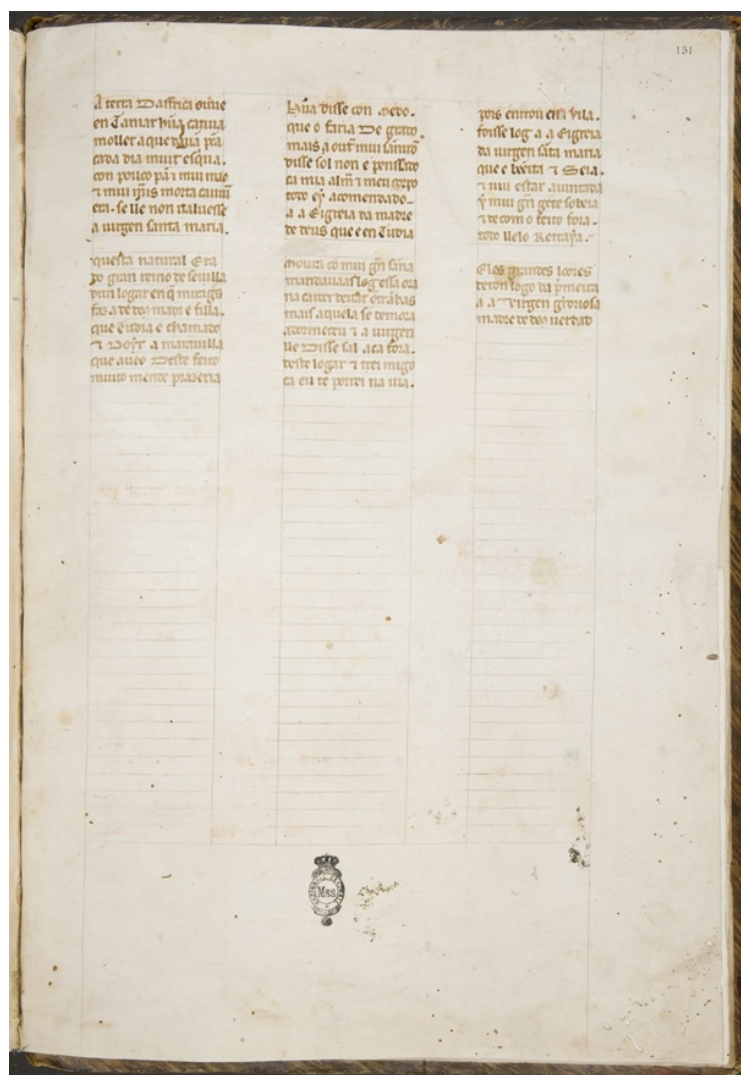 131
A terra Daffrica ouue
en Tanjar hũa catiua
moller a que dauia pẽa
cada dia muit esquiua.
con pouco pã ⁊ mui mao
eta. se lle non ualuesse
a uirgen santa maria.
questa natural Era
do gran reino de seuilla
dun logar en q̃ miragẽs
faz a de d's madr e filla.
que Tudia e chamado
⁊ Doyr a marauilla
que aueo Deste feito
muito mente prazeria
hũa disse con medo.
que o faria De grado.
mais a outr mui sannud
disse sol non e penssado
ca mia alm̃ ⁊ meu corpo
todo ey acomendado
a a Eigreia da madre
de deus que e en Tudia
moura cõ mui gñ saña
mandauaas log essa ora
na carcer deitar entrãbas
mais aquela se demora
adormeceu ⁊ a uirgen
lle Disse sal aca fora.
deste logar ⁊ irei migo
ca eu te porrei na uia.
pois entrou ena vila.
foisse log a a Eigreia
da uirgen sãta maria
que e bẽeita ⁊ Seia.
⁊ uiu estar aiuntada
y mui gñ gẽte sobeia
⁊ de com o feito fora.
todo llelo Retraya.
Eles grandes loores
deron logo da pmeira
a a Virgen groriosa
madre de d's uerdad
Mss